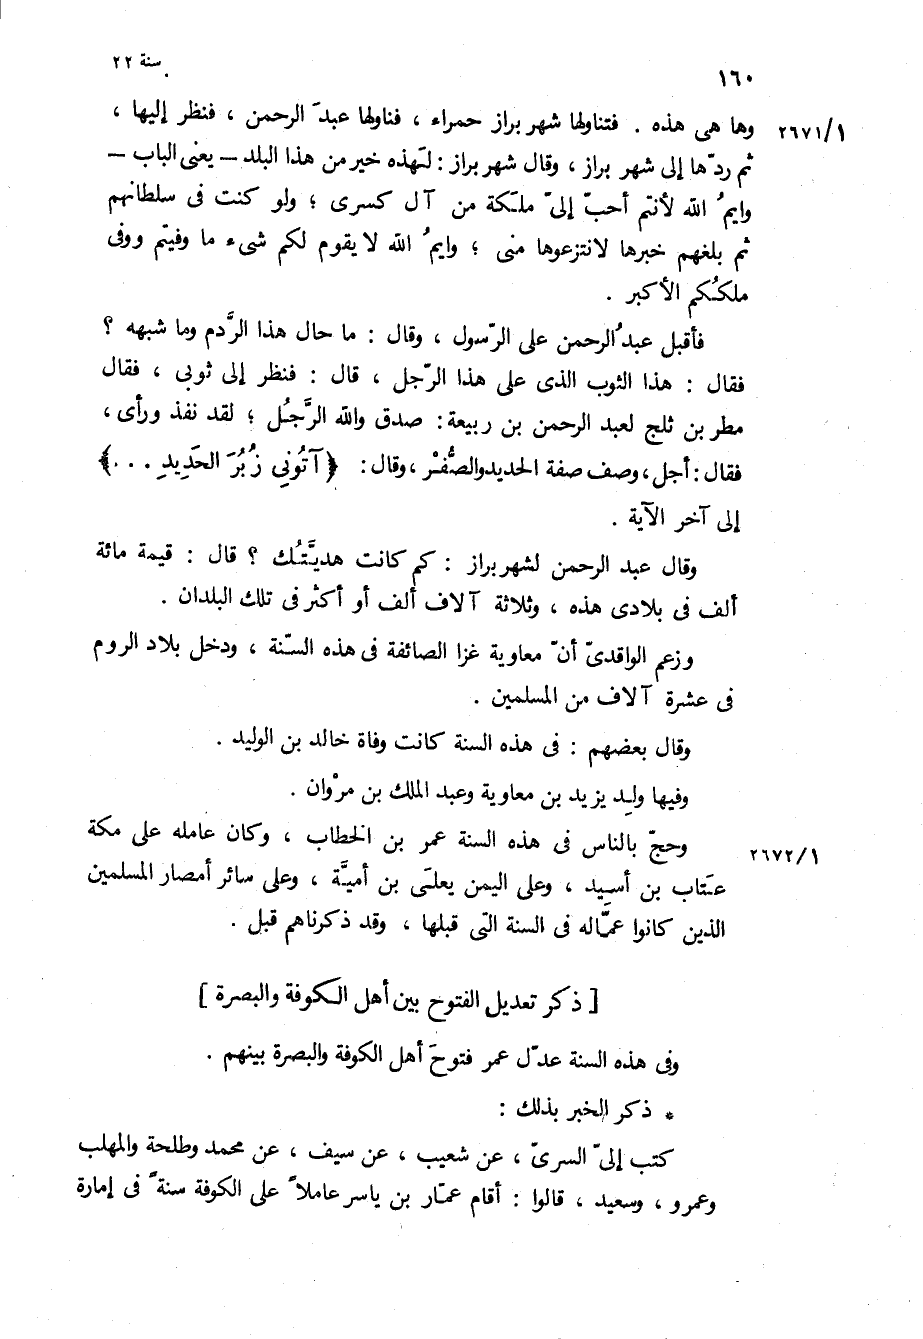 ١٦٠ سنة ٢٢
٢٦٧١/١ وها هى هذه . فتناولها شهر براز حمراء ، فناولها عبدَ الرحمن ، فنظر إليها ،
ثم ردّها إلى شهر براز ، وقال شهر براز : لَهذه خير من هذا البلد – يعنى الباب –
وايمُ الله لأنتم أحبّ إلىّ ملكة من آل كسرى ؛ ولو كنت فى سلطانهم
ثم بلغهم خبرها لانتزعوها منى ؛ وايمُ الله لا يقوم لكم شىء ما وفيتم ووفى
ملكُكم الأكبر .
فأقبل عبدُ الرحمن على الرّسول ، وقال : ما حال هذا الرَّدم وما شبهه ؟
فقال : هذا الثوب الذى على هذا الرّجل ، قال : فنظر إلى ثوبى ، فقال
مطر بن ثلج لعبد الرحمن بن ربيعة : صدق والله الرَّجُل ؛ لقد نفذ ورأى ،
فقال : أجل ، وصف صفة الحديد والصُّفْر ، وقال : ﴿ آتُونِي زُبُرَ الحَدِيدِ . . . ﴾
إلى آخر الآية .
وقال عبد الرحمن لشهر براز : كم كانت هديَّتُك ؟ قال : قيمة مائة
ألف فى بلادى هذه ، وثلاثة آلاف ألف أو أكثر فى تلك البلدان .
وزعم الواقدىّ أنّ معاوية غزا الصائفة فى هذه السّنة ، ودخل بلاد الروم
فى عشرة آلاف من المسلمين .
وقال بعضهم : فى هذه السنة كانت وفاة خالد بن الوليد .
وفيها ولِد يزيد بن معاوية وعبد الملك بن مرْوان .
٢٦٧٢/١ وحجّ بالناس فى هذه السنة عمر بن الخطاب ، وكان عامله على مكة
عتَاب بن أَسيد ، وعلى اليمن يعلَى بن أميَّة ، وعلى سائر أمصار المسلمين
الذين كانوا عمّاله فى السنة التى قبلها ، وقد ذكرناهم قبل .
[ ذكر تعديل الفتوح بين أهل الكوفة والبصرة ]
وفى هذه السنة عدّل عمر فتوحَ أهل الكوفة والبصرة بينهم .
* ذكر الخبر بذلك :
كتب إلىّ السرىّ ، عن شعيب ، عن سيف ، عن محمد وطلحة والمهلب
وعمرو ، وسعيد ، قالوا : أقام عمّار بن ياسر عاملاً على الكوفة سنةً فى إمارة